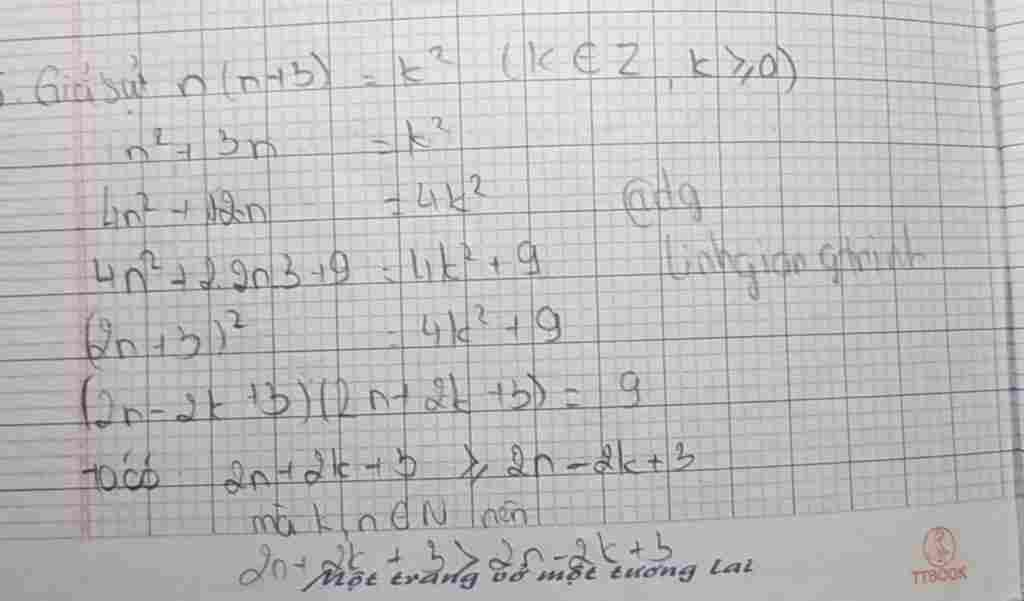 Giả sử n(n+3) = k² (k ∈ Z, k ≥ 0)
n² + 3n = k²
4n² + 12n = 4k²
@Hg
4n² + 2.2n3 + 9 = 4k² + 9
(2n+3)² = 4k² + 9
(2n - 2k + 3)(2n + 2k + 3) = 9
ta có 2n + 2k + 3 ≥ 2n - 2k + 3
mà k, n ∈ N nên
2n + 2k + 3 > 2n - 2k + 3
Một trang vở một tương lai
TTBOOK